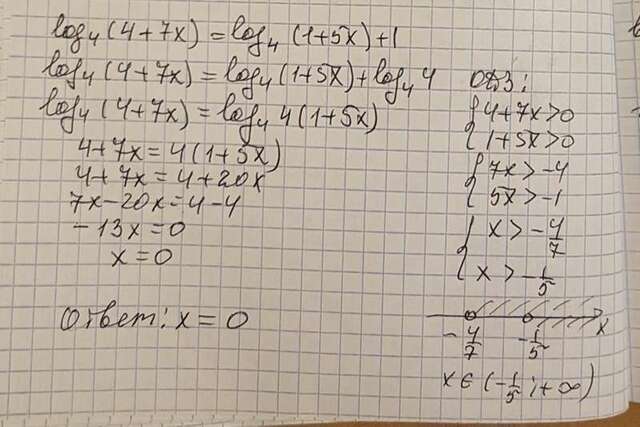 log₄(4+7x)=log₄(1+5x)+1
log₄(4+7x)=log₄(1+5x)+log₄4
log₄(4+7x)=log₄4(1+5x)
4+7x=4(1+5x)
4+7x=4+20x
7x-20x=4-4
-13x=0
x=0
Ответ: x=0
ОДЗ:
{4+7x>0
{1+5x>0
{7x>-4
{5x>-1
{x>-4/7
{x>-1/5
-4/7 -1/5 x
x∈(-1/5;+∞)